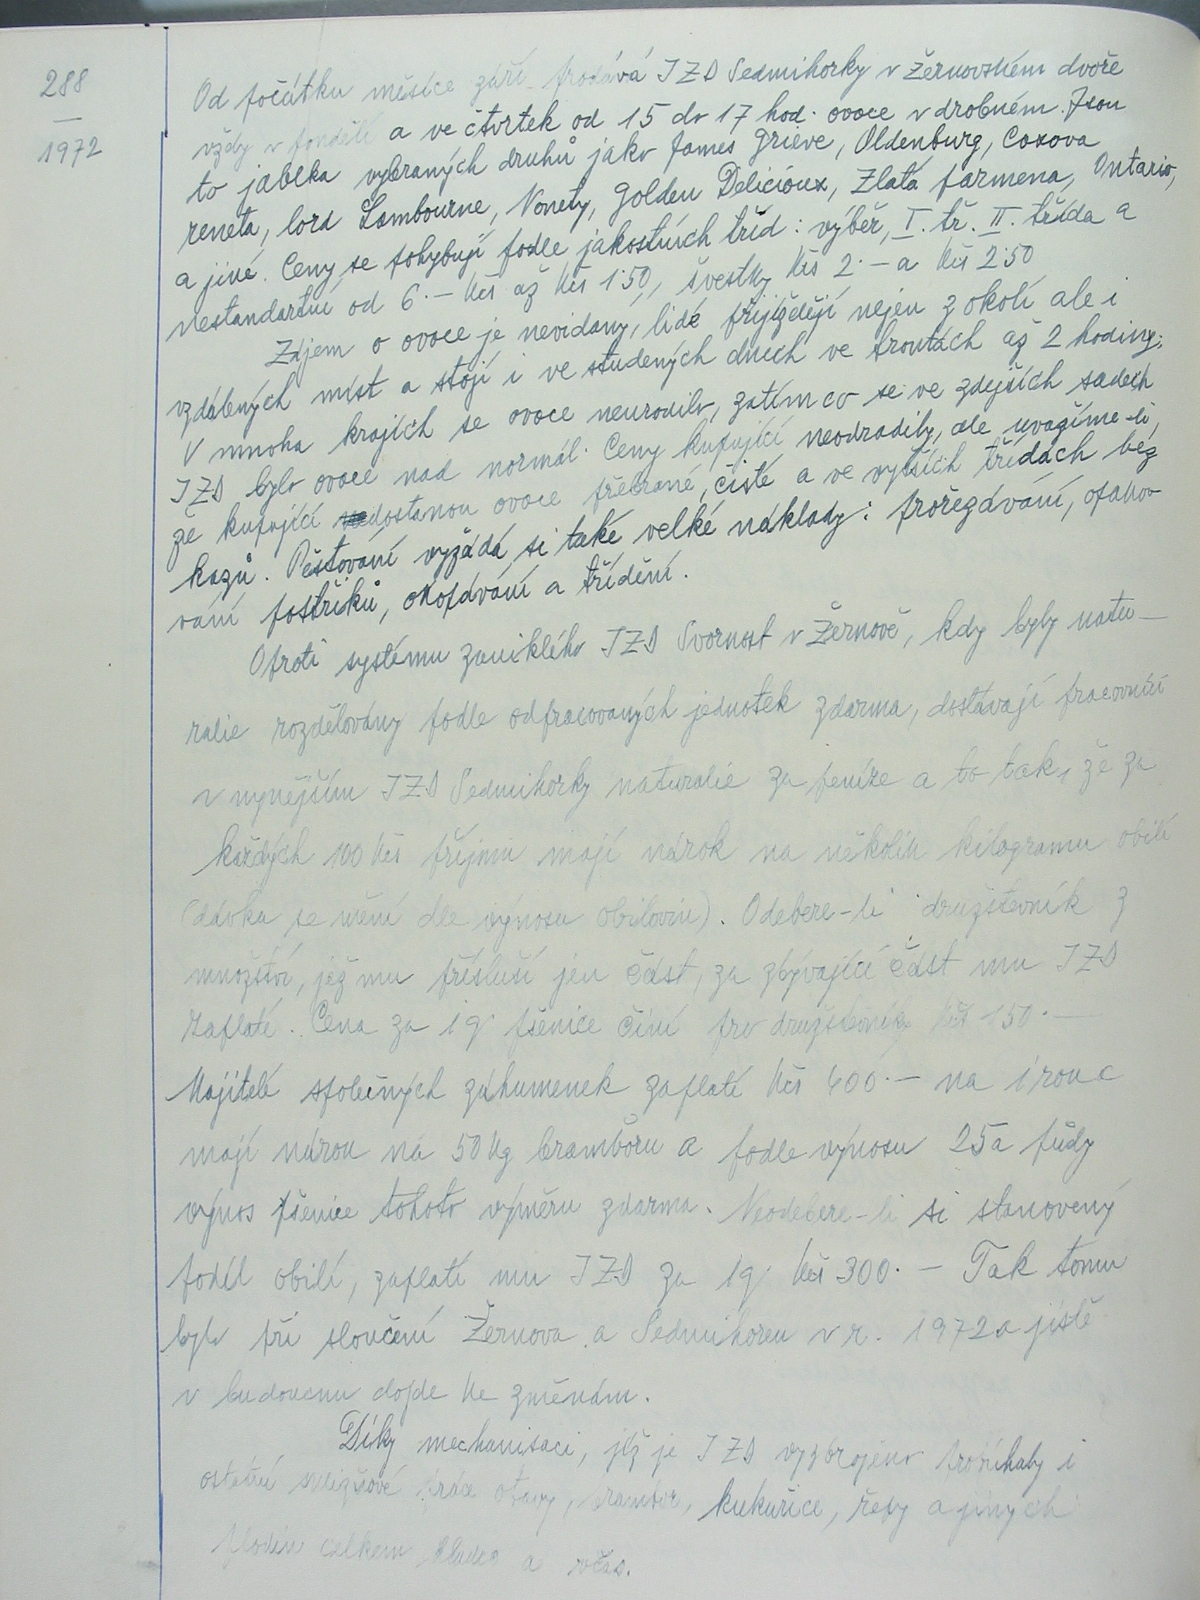 288
1972
Od počátku měsíce září prodává JZD Sedmihorky v Žernovském dvoře
vždy v pondělí a ve čtvrtek od 15 do 17 hod. ovoce v drobném. Jsou
to jablka vybraných druhů jako James Grieve, Oldenburg, Coxova
reneta, lord Lambourne, Nonety, Golden Delicioux, Zlatá parmena, Ontario,
a jiné. Ceny se pohybují podle jakostních tříd: výběr, I. tř. II. třída a
nestandartní od 6.– Kčs až Kčs 1.50, švestky Kčs 2.– a Kčs 2.50
Zájem o ovoce je nevídaný, lidé přijíždějí nejen z okolí ale i
vzdálených míst a stojí i ve studených dnech ve frontách až 2 hodiny;
V mnoha krajích se ovoce neurodilo, zatím co se ve zdejších sadech
JZD bylo ovoce nad normál. Ceny kupující neodradily, ale uvažíme-li,
že kupující dostanou ovoce přebrané, čisté a ve vyšších třídách bez
kazů. Pěstování vyžádá si také velké náklady: prořezávání, opako-
vání postřiků, okopávání a třídění.
Oproti systému zaniklého JZD Svornost v Žernově, kdy byly natu-
ralie rozdělovány podle odpracovaných jednotek zdarma, dostávají pracovníci
v nynějším JZD Sedmihorky naturalie za peníze a to tak, že za
každých 100 Kčs příjmu mají nárok na několik kilogramu obilí
(dávka se mění dle výnosu obilovin). Odebere-li družstevník z
množství, jež mu přísluší jen část, za zbývající část mu JZD
zaplatí. Cena za 1 q pšenice činí pro družstevníky Kčs 150.–
Majitelé společných záhumenek zaplatí Kčs 400.– na 1 rok a
mají nárok na 50 kg bramboru a podle výnosu 25a půdy
výnos pšenice tohoto výměru zdarma. Neodebere-li si stanovený
podíl obilí, zaplatí mu JZD za 1q Kčs 300.– Tak tomu
bylo při sloučení Žernova a Sedmihorek v r. 1972 a jistě
v budoucnu dojde ke změnám.
Díky mechanisaci, jíž je JZD vyzbrojeno probíhaly i
ostatní sklizňové práce otavy, brambor, kukuřice, řepy a jiných
plodin celkem hladce a včas.